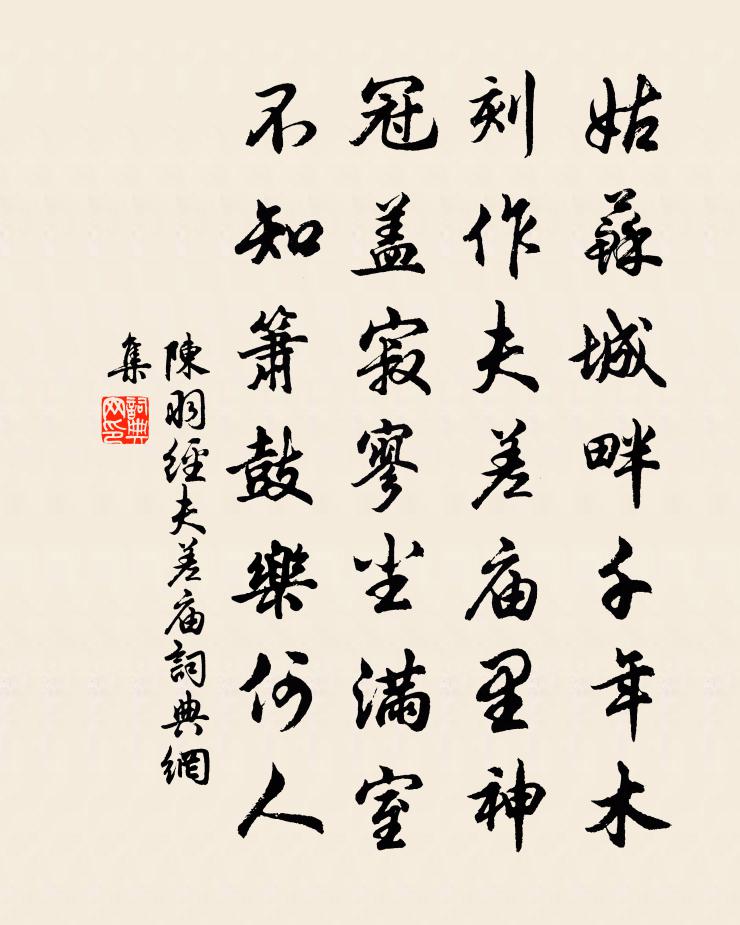 姑蘇城畔千年木
刻作夫差庙里神
冠盖寂寥尘满室
不知簫鼓樂何人
陳羽經夫差庙詞典網
集
詞典
网印